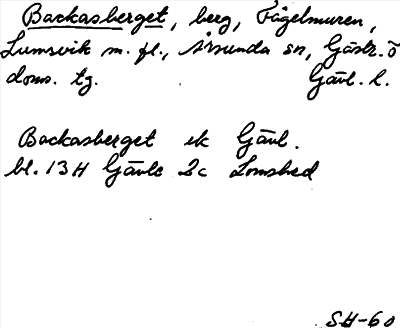 Backasberget, berg, Fågelmuren,
Lumsvik m. fl., Årsunda sn, Gästr. ö
doms. tg. Gävl. l.
Backasberget ek Gävl.
bl. 13H Gävle 2c Lomshed
SH-60